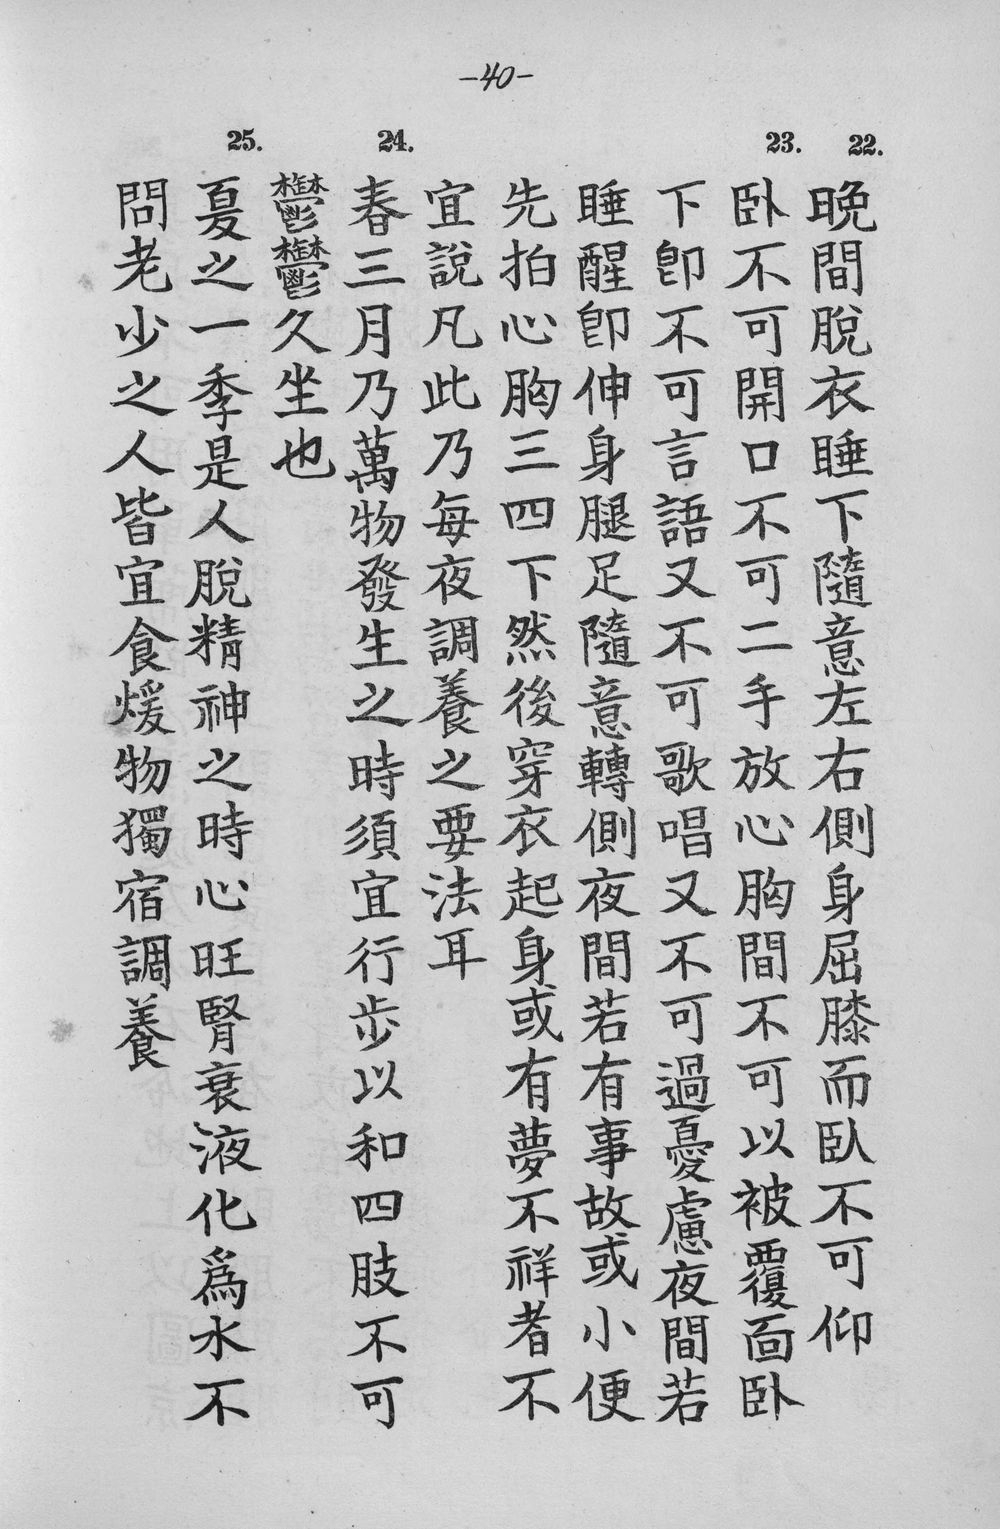 -40-
22.
23.
24.
25.
晚間脫衣睡下隨意左右側身屈膝而臥不可仰
卧不可開口不可二手放心胸間不可以被覆面卧
下卽不可言語又不可歌唱又不可過憂慮夜間若
睡醒卽伸身腿足隨意轉側夜間若有事故或小便
先拍心胸三四下然後穿衣起身或有夢不祥者不
宜說凡此乃每夜調養之要法耳
春三月乃萬物發生之時須宜行步以和四肢不可
鬱鬱久坐也
夏之一季是人脫精神之時心旺腎衰液化爲水不
問老少之人皆宜食煖物獨宿調養